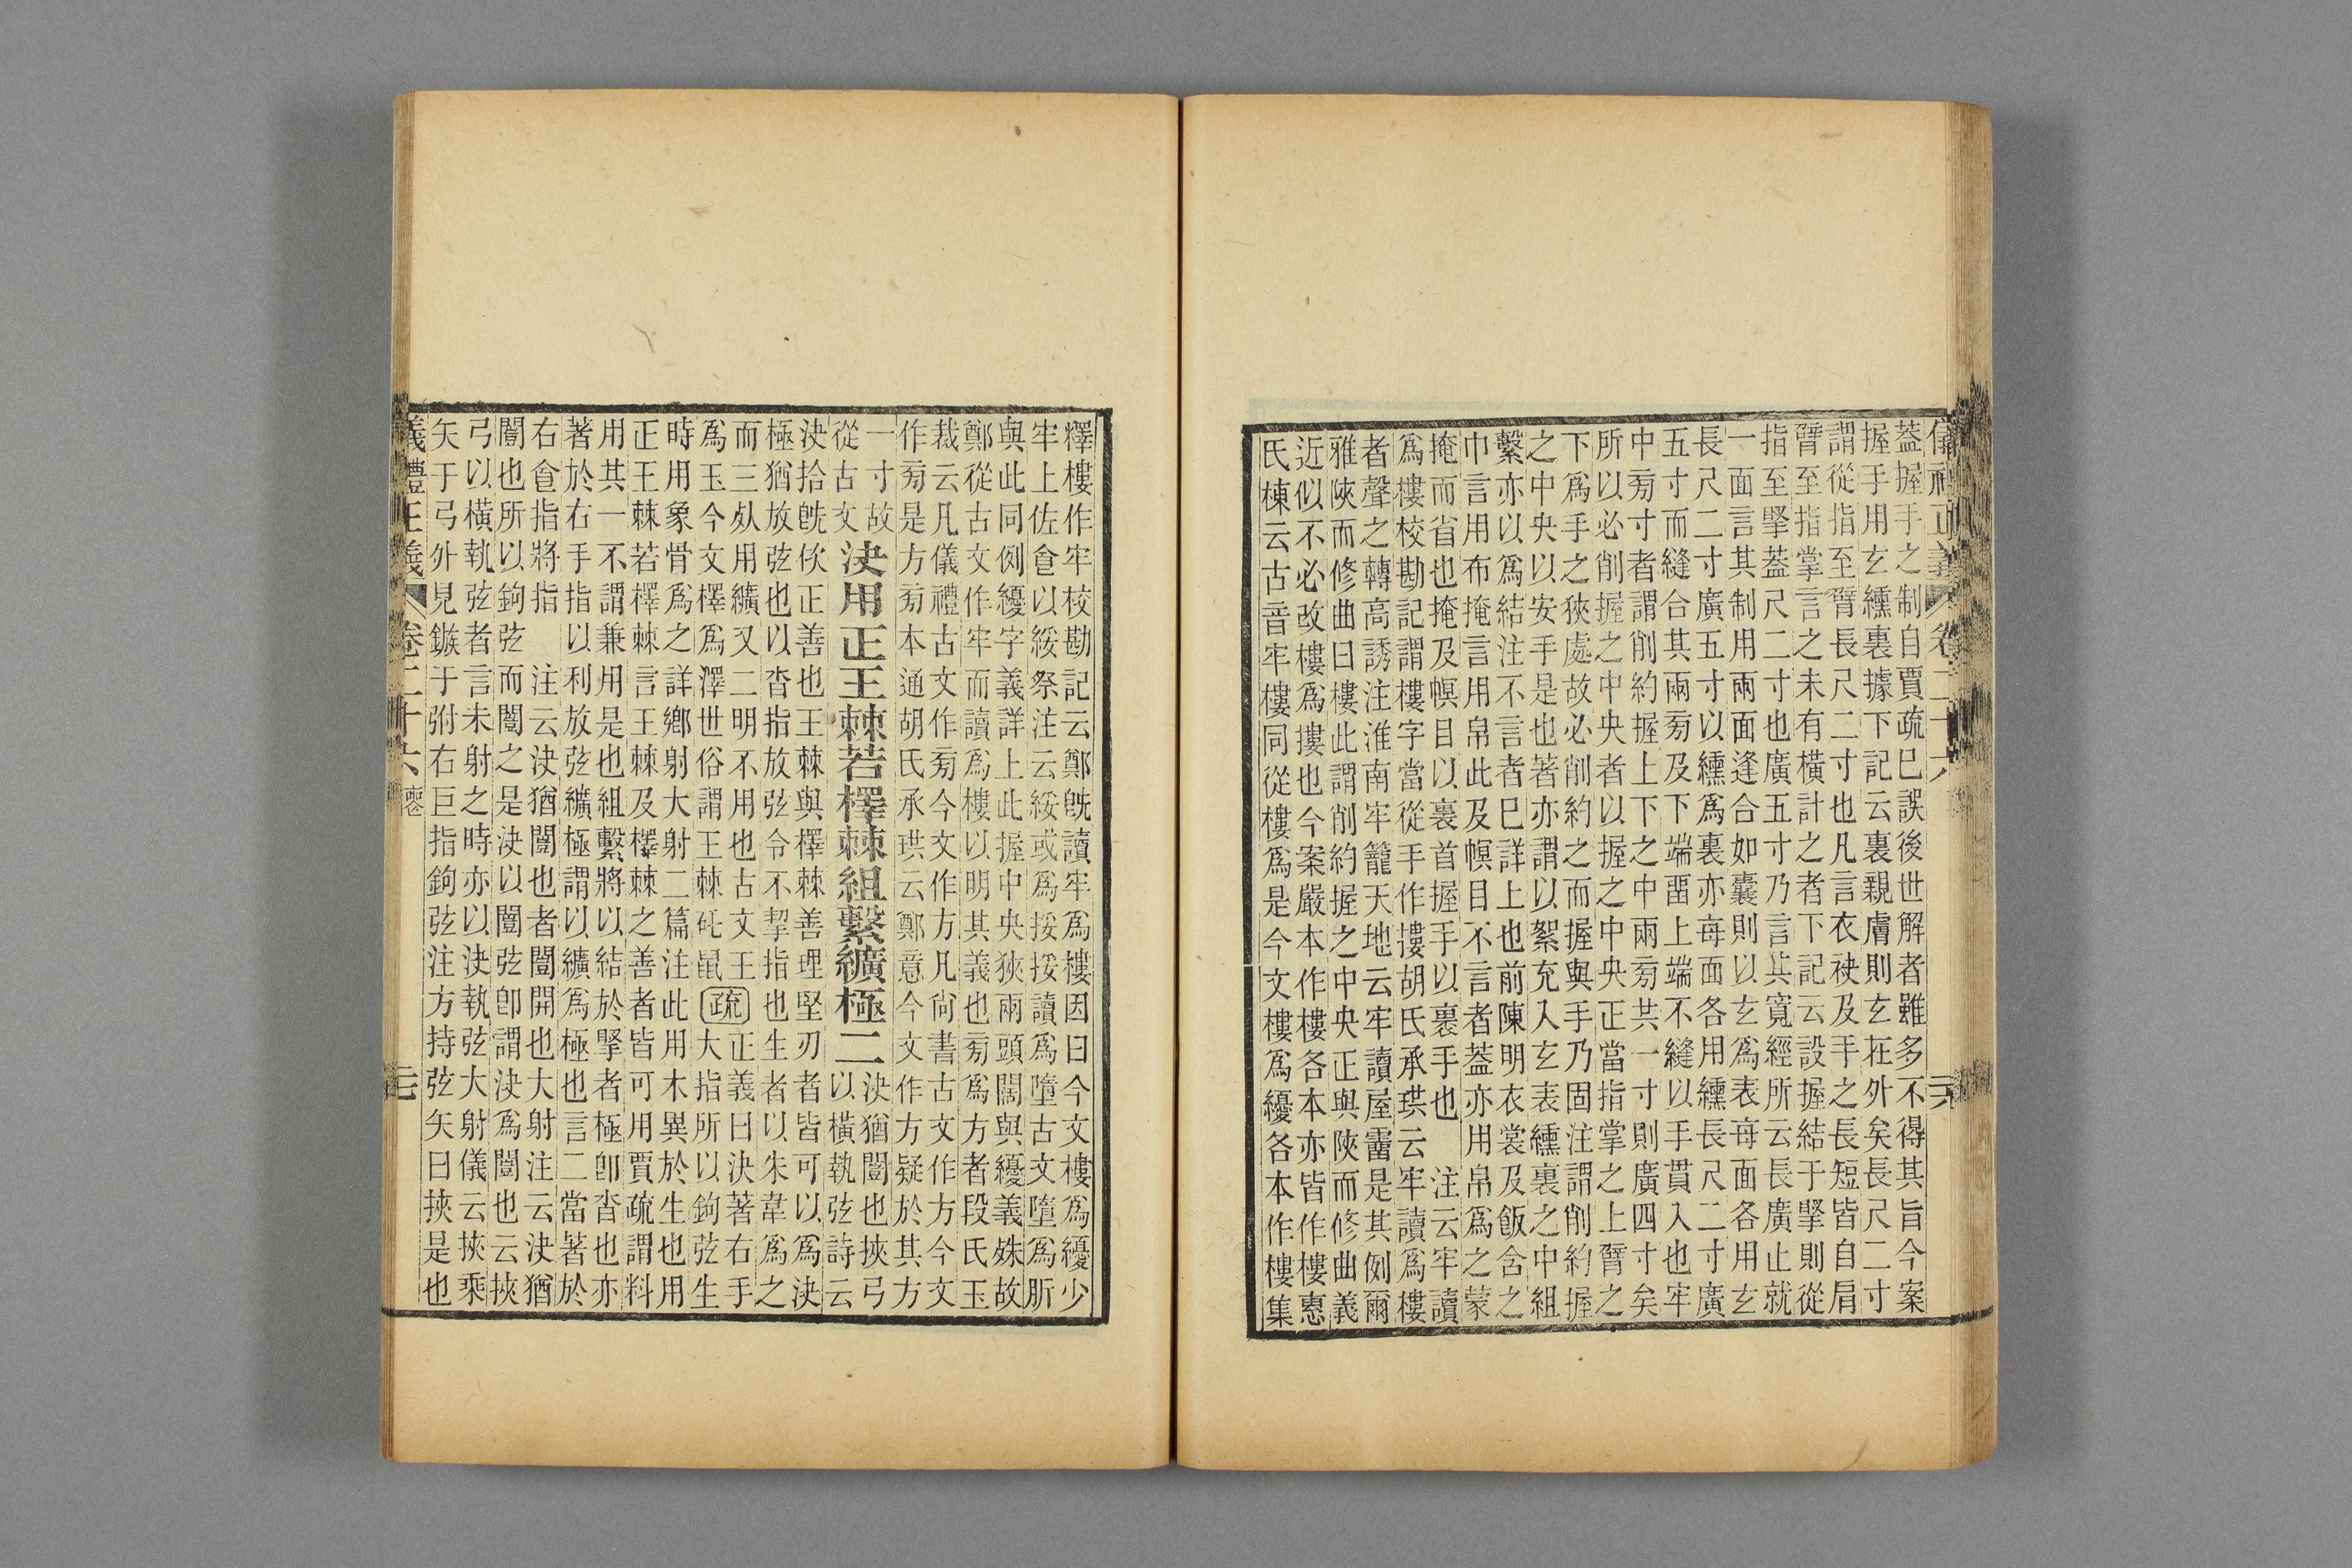 儀禮正義卷二十六
葢握手之制自賈疏已誤後世解者雖多不得其旨今案
握手用玄纁裏據下記云裏親膚則玄在外矣長尺二寸
謂從指至掔長尺二寸也凡言衣袂及手之長短皆自肩
臂至指掌言之未有橫計之者下記云設握結于掔則從
指至掔葢尺二寸也廣五寸乃言其寬經所云長廣止就
一面言其制用兩面逢合如囊則以玄爲表每面各用玄
長尺二寸廣五寸以纁爲裏亦每面各用纁長尺二寸廣
五寸而縫合其兩㫄及下端畱上端不縫以手貫入也牢
中㫄寸者謂削約握上下之中兩㫄共一寸則廣四寸矣
所以必削握之中央者以握之中央正當指掌之上臂之
下爲手之狹處故必削約之而握與手乃固注謂削約握
之中央以安手是也著亦謂以絮充入玄表纁裏之中組
繫亦以爲結注不言者已詳上也前陳明衣裳及飯含之
巾言用布掩言用帛此及幎目不言者葢亦用帛爲之蒙
掩而省也掩及幎目以裏首握手以裹手也 注云牢讀
爲樓校勘記謂樓字當從手作摟胡氏承珙云牢讀爲樓
者聲之轉高誘注淮南牢籠天地云牢讀屋霤是其例爾
雅陜而修曲曰樓此謂削約握之中央正與陜而修曲義
近似不必改樓爲摟也今案嚴本作樓各本亦皆作樓惠
氏棟云古音牢樓同從樓爲是今文樓爲纋各本作樓集
釋樓作牢校勘記云鄭旣讀牢爲樓因曰今文樓爲纋少
牢上佐食以綏祭注云綏或爲挼挼讀爲墮古文墮爲肵
與此同例纋字義詳上此握中央狹兩頭闊與纋義殊故
鄭從古文作牢而讀爲樓以明其義也㫄爲方者段氏玉
裁云凡儀禮古文作㫄今文作方凡尙書古文作方今文
作㫄是方㫄本通胡氏承珙云鄭意今文作方疑於其方
一寸故從古文 決用正王棘若檡棘組繫纊極二 決猶闓也挾弓以橫執弦詩云
決拾旣佽正善也王棘與檡棘善理堅刃者皆可以爲決
極猶放弦也以沓指放弦令不挈指也生者以朱韋爲之
而三㱾用纊又二明不用也古文王 疏 正義曰決著右手
爲玉今文檡爲澤世俗謂王棘矺鼠 大指所以鉤弦生
時用象骨爲之詳鄉射大射二篇注此用木異於生也用
正王棘若檡棘言王棘及檡棘之善者皆可用賈疏謂科
用其一不謂兼用是也組繫將以結於掔者極卽沓也亦
著於右手指以利放弦纊極謂以纊爲極也言二當著於
右食指將指 注云決猶闓也者闓開也大射注云決猶
闓也所以鉤弦而闓之是決以闓弦卽謂決爲闓也云挾
弓以橫執弦者言未射之時亦以決執弦大射儀云挾乘
矢于弓外見鏃于弣右巨指鉤弦注方持弦矢曰挾是也